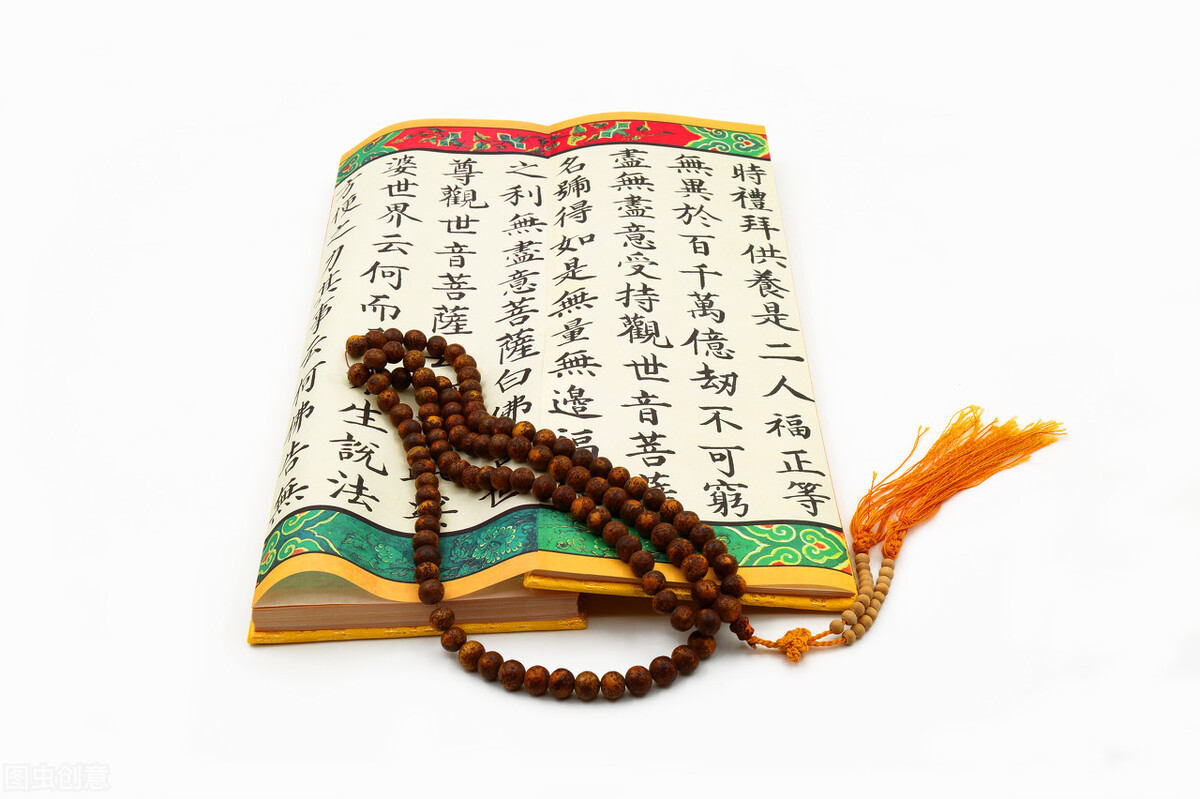 時禮拜供養是二人福正等
無異於百千萬億劫不可窮
盡無盡意受持觀世音菩薩
名號得如是無量無邊福
之利無盡意菩薩白佛世
尊觀世音菩薩
婆世界云何而生說法
方便之力其事云何佛告無
图虫创意